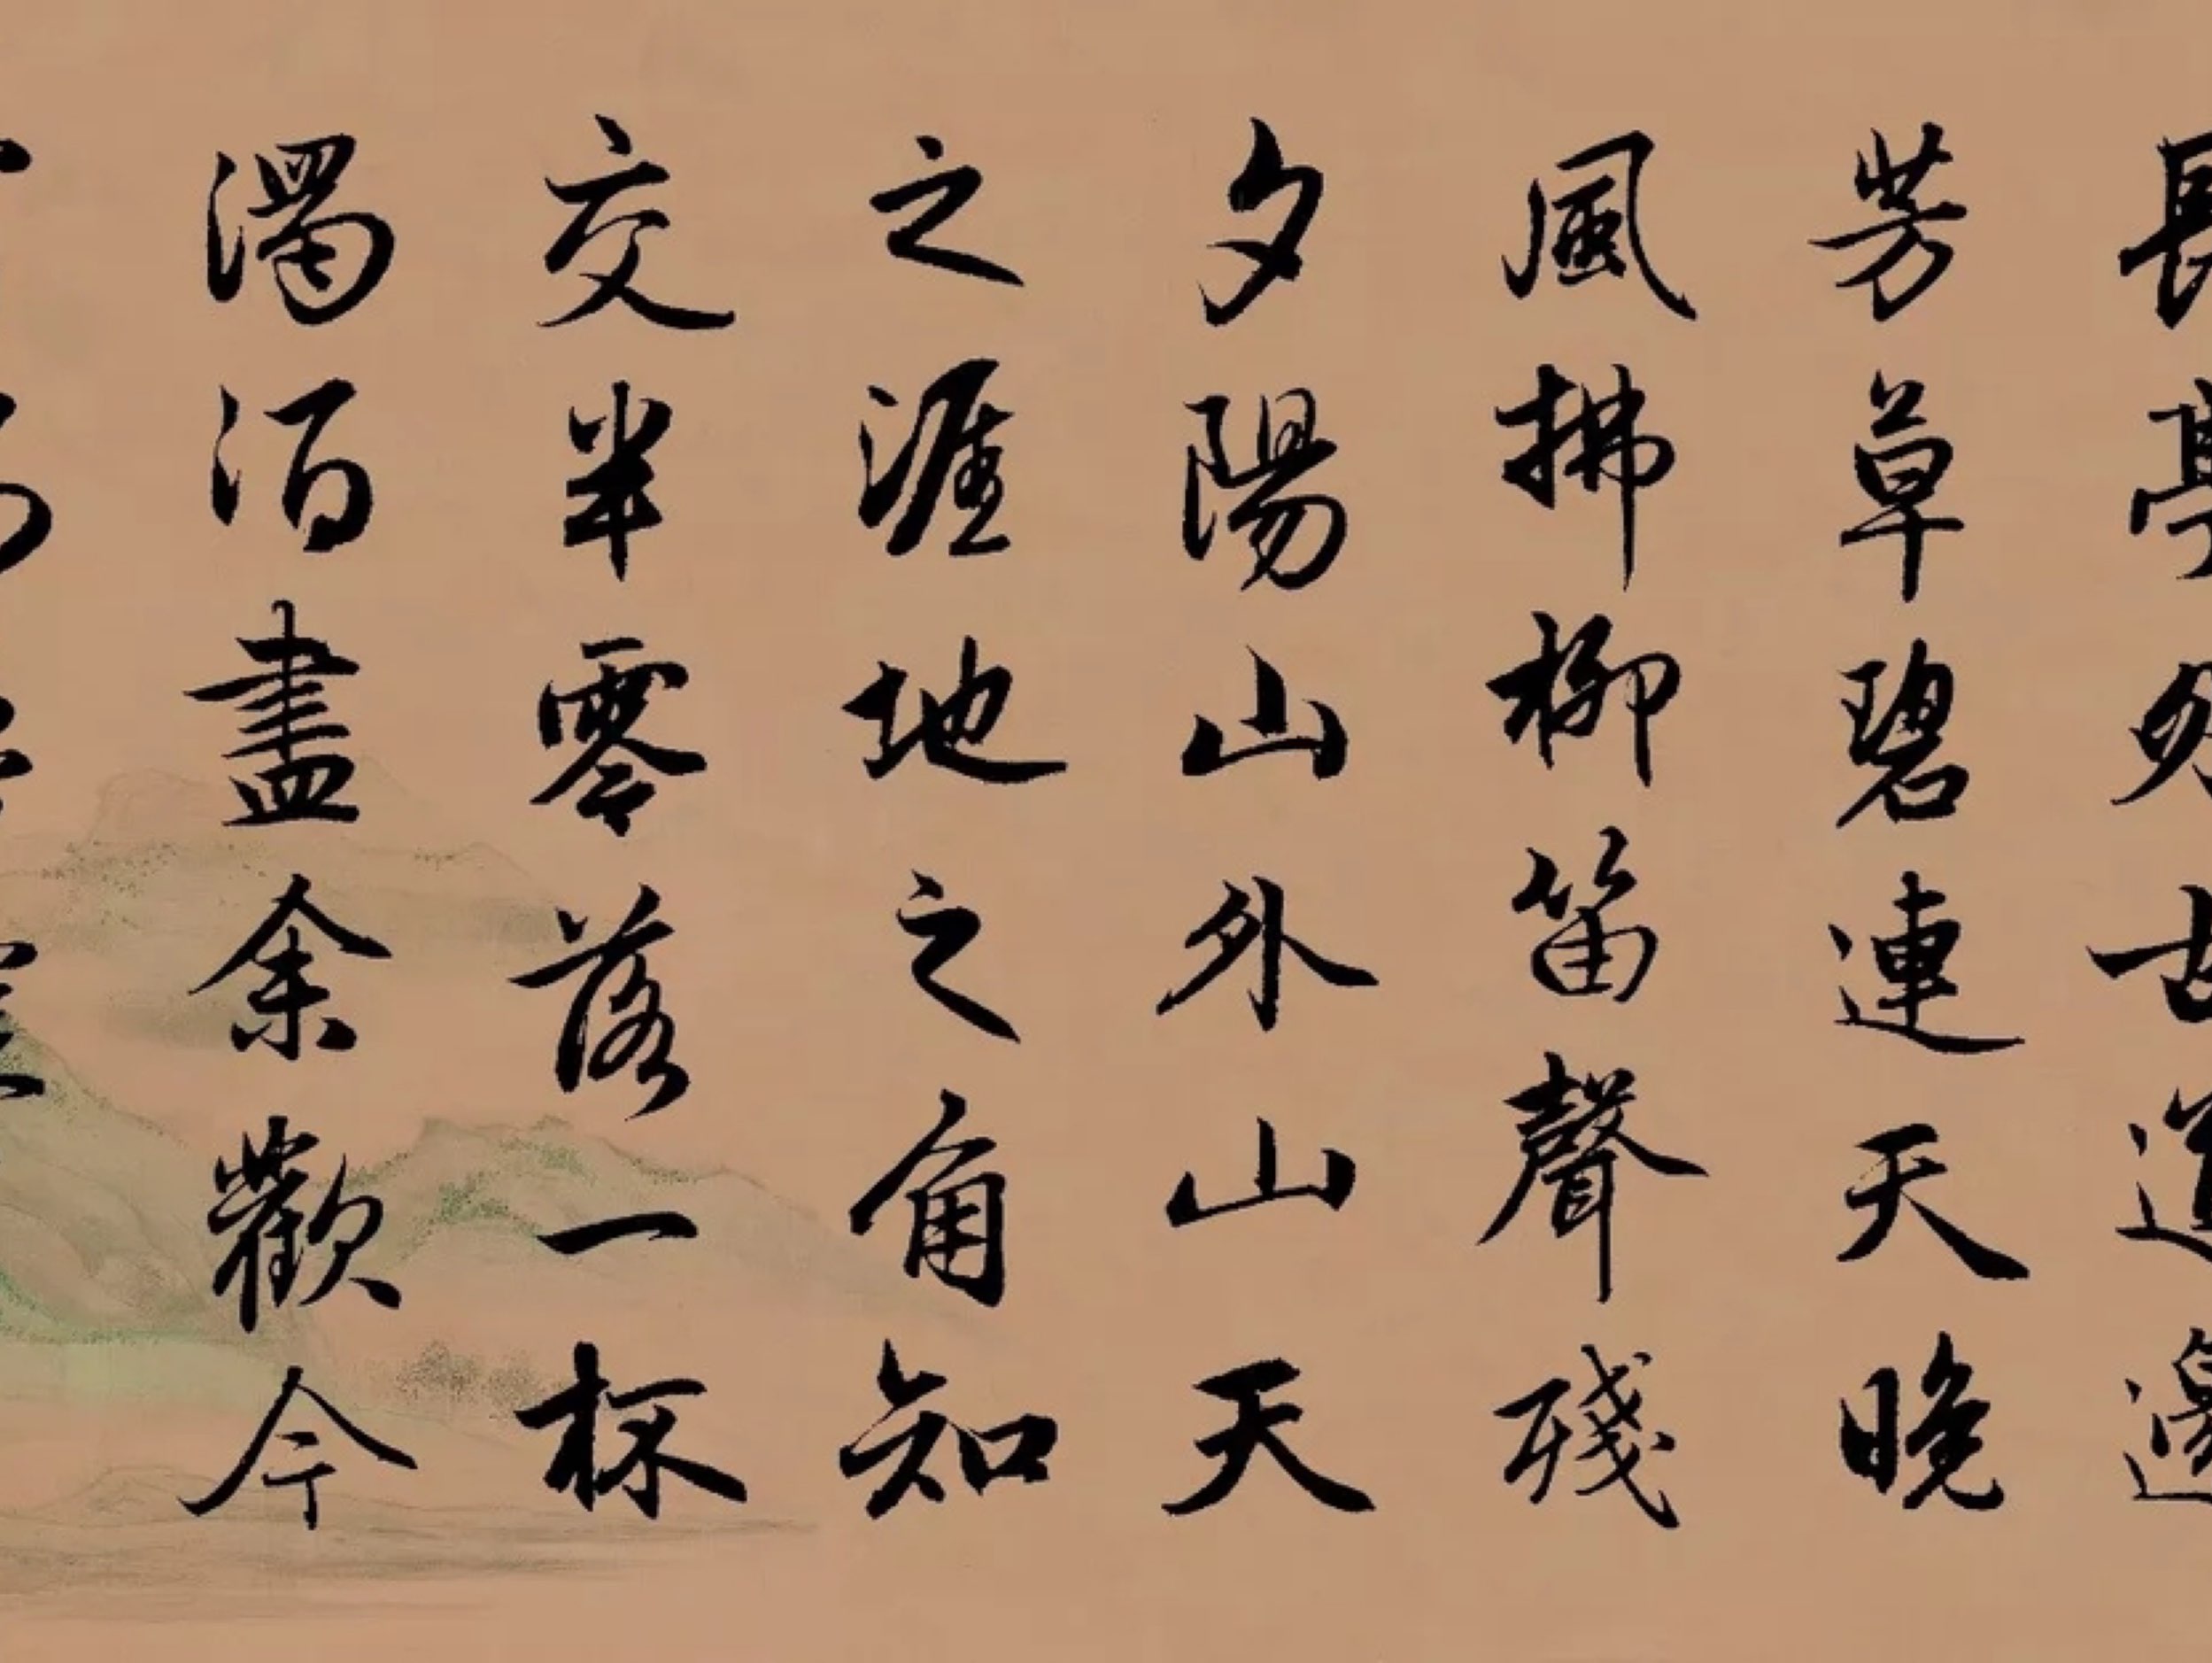 長亭外古道邊
芳草碧連天晚
風拂柳笛聲殘
夕陽山外山天
之涯地之角知
交半零落一杯
濁酒盡余歡今